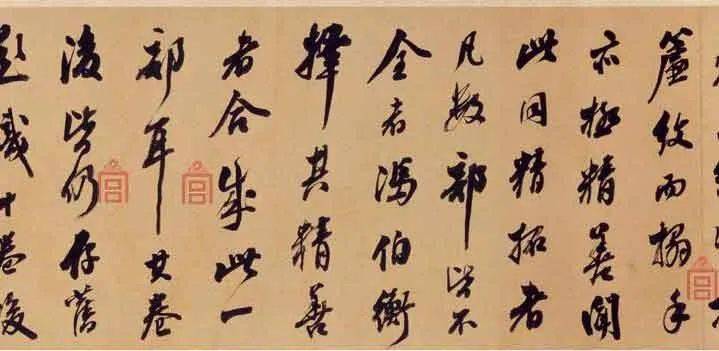 簾紋而搨手
亦極精善聞
此同精拓者
凡數部皆不
全者馮伯衡
擇其精善
者合成此一
部耳其卷
後皆仍存舊
題識十卷後